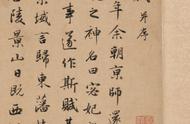 并序
年余朝京師還
之神名曰宓妃
事遂作斯賦其
京域言歸東藩
陵景山日既西